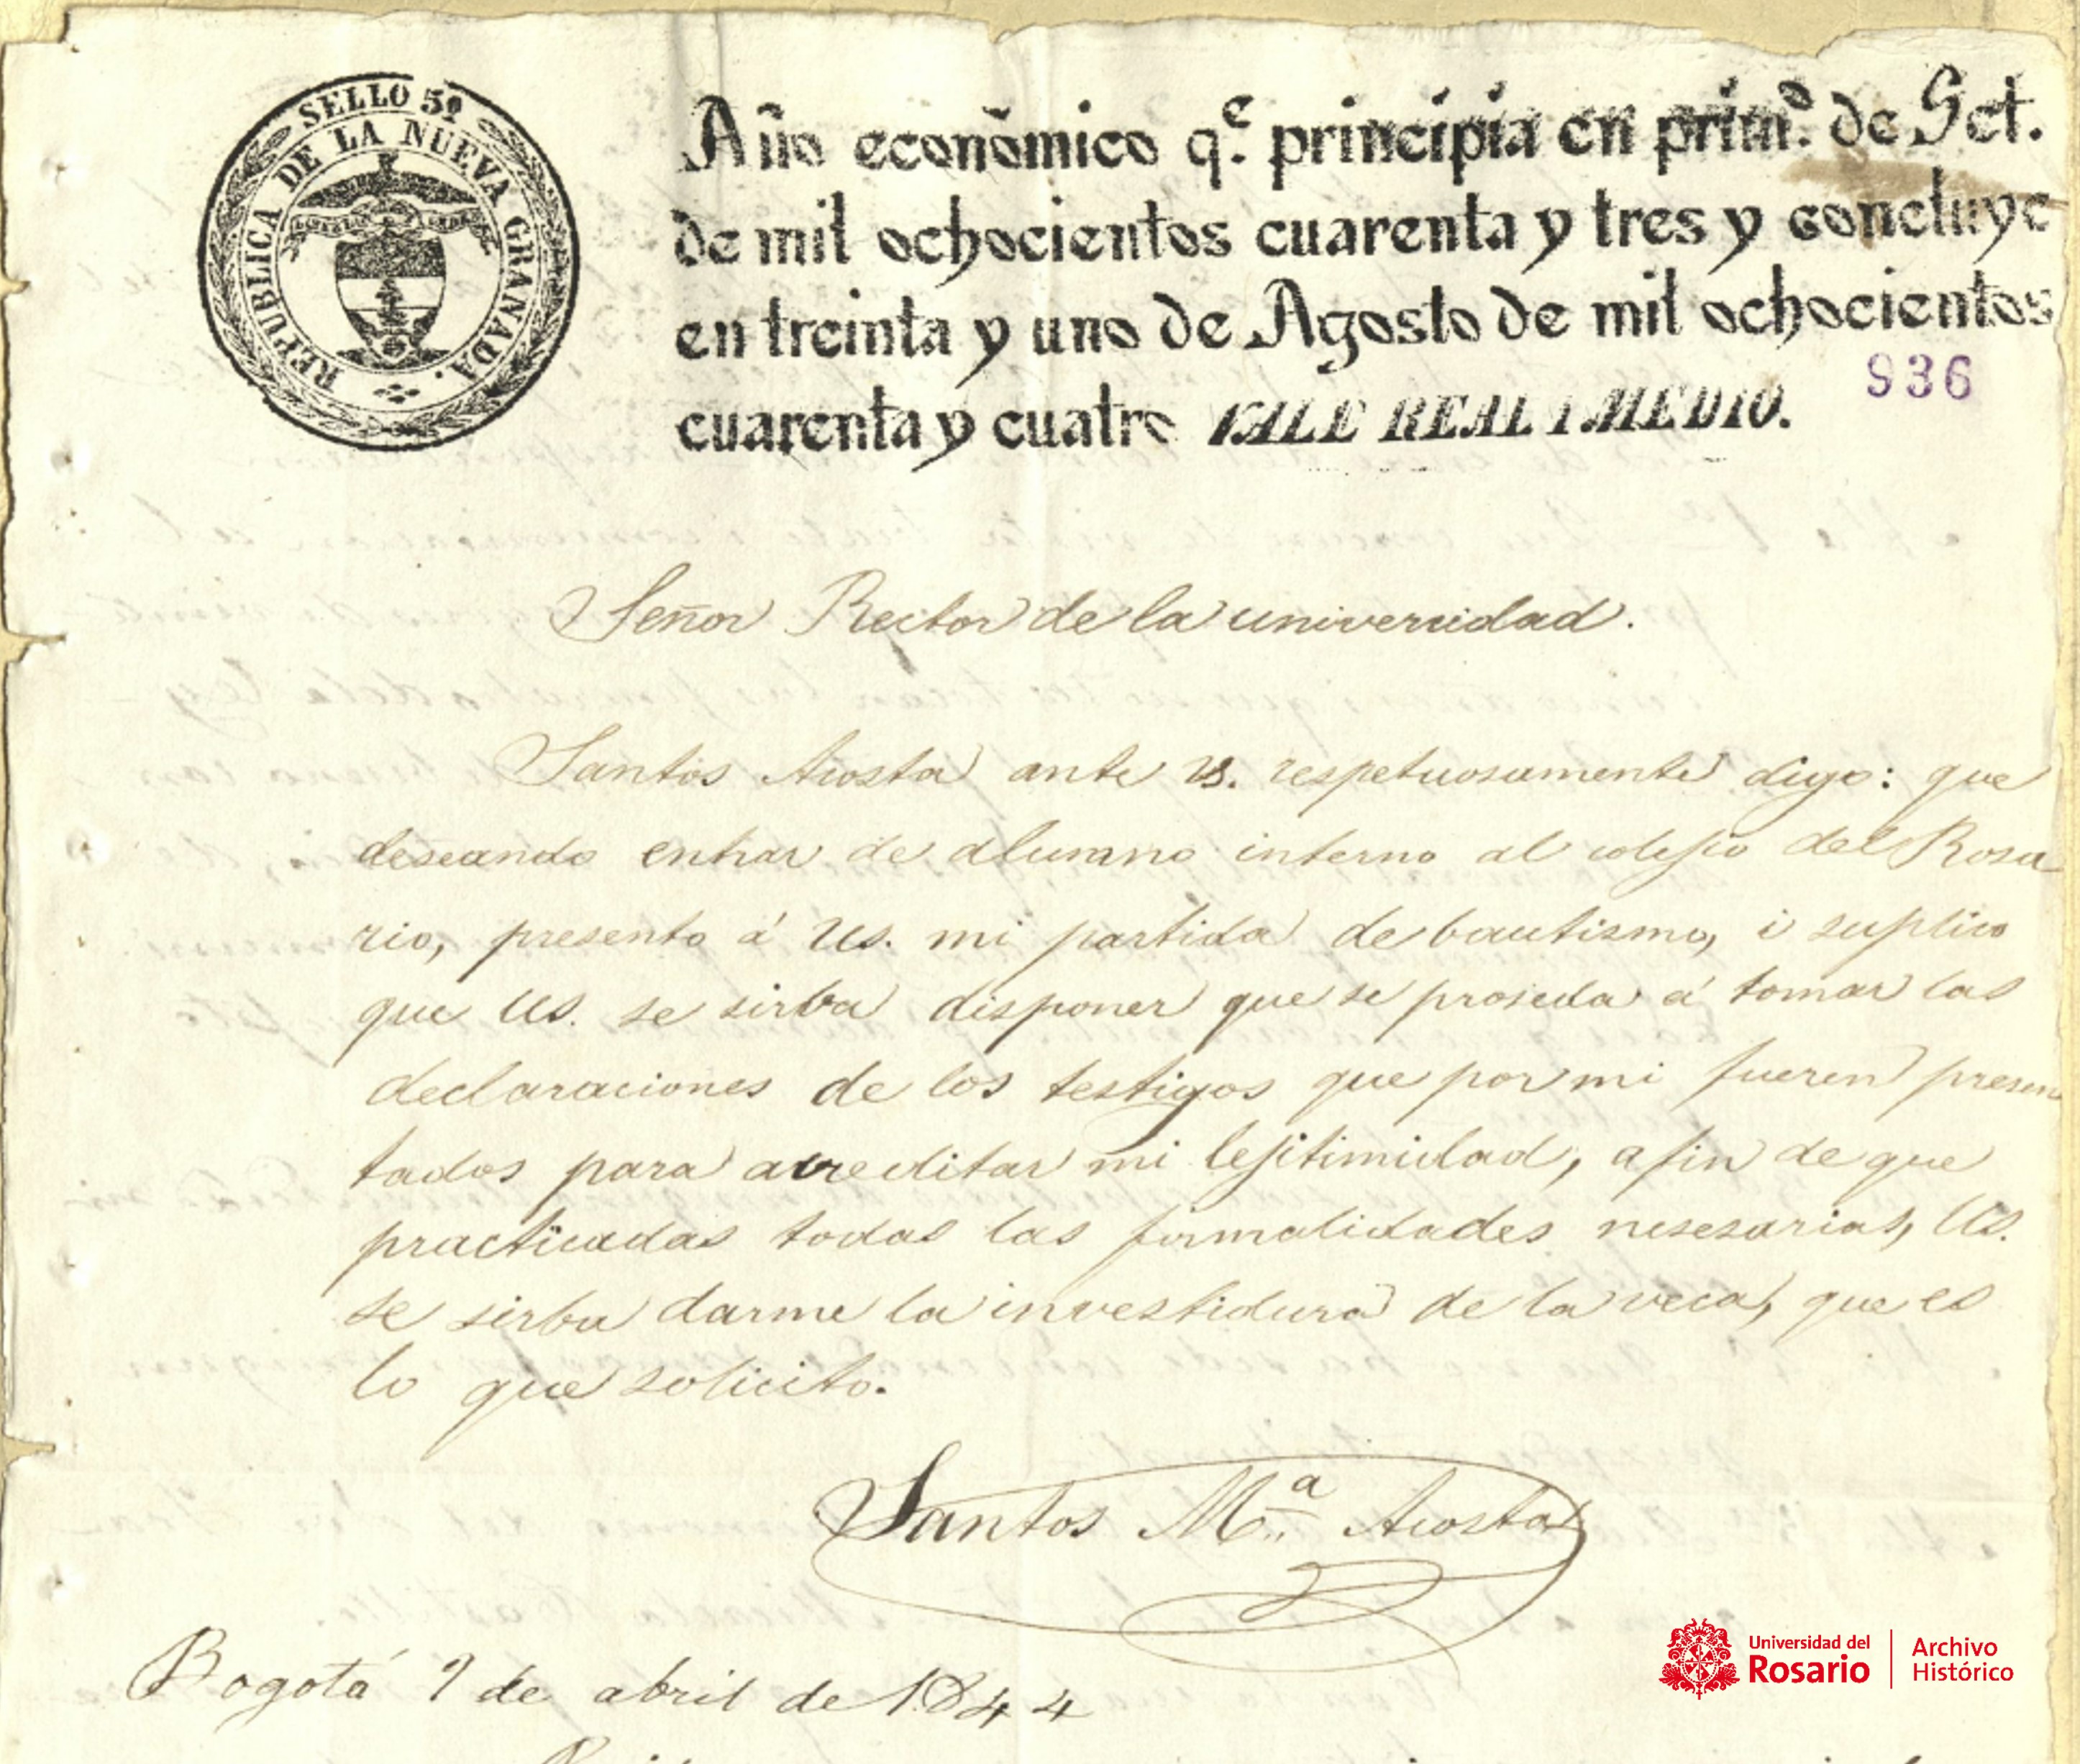 SELLO 5º
REPUBLICA DE LA NUEVA GRANADA.
Año económico q.e principia en prim.o de Set.
de mil ochocientos cuarenta y tres y concluye
en treinta y uno de Agosto de mil ochocientos
cuarenta y cuatro VALE REAL I MEDIO.
936
Señor Rector de la universidad.
Santos Acosta ante us. respetuosamente digo: que
deseando entrar de alumno interno al colejio del Rosa
rio, presento á Us. mi partida de bautismo, i suplico
que Us. se sirba disponer que se proseda á tomar las
declaraciones de los testigos que por mi fueren presen
tados para acreditar mi lejitimidad, a fin de que
practicadas todas las formalidades nesesarias, Us.
se sirba darme la investidura de la veca, que es
lo que solicito.
Santos M.a Acosta
Bogotá 9 de abril de 1844
Universidad del
Rosario
Archivo
Histórico